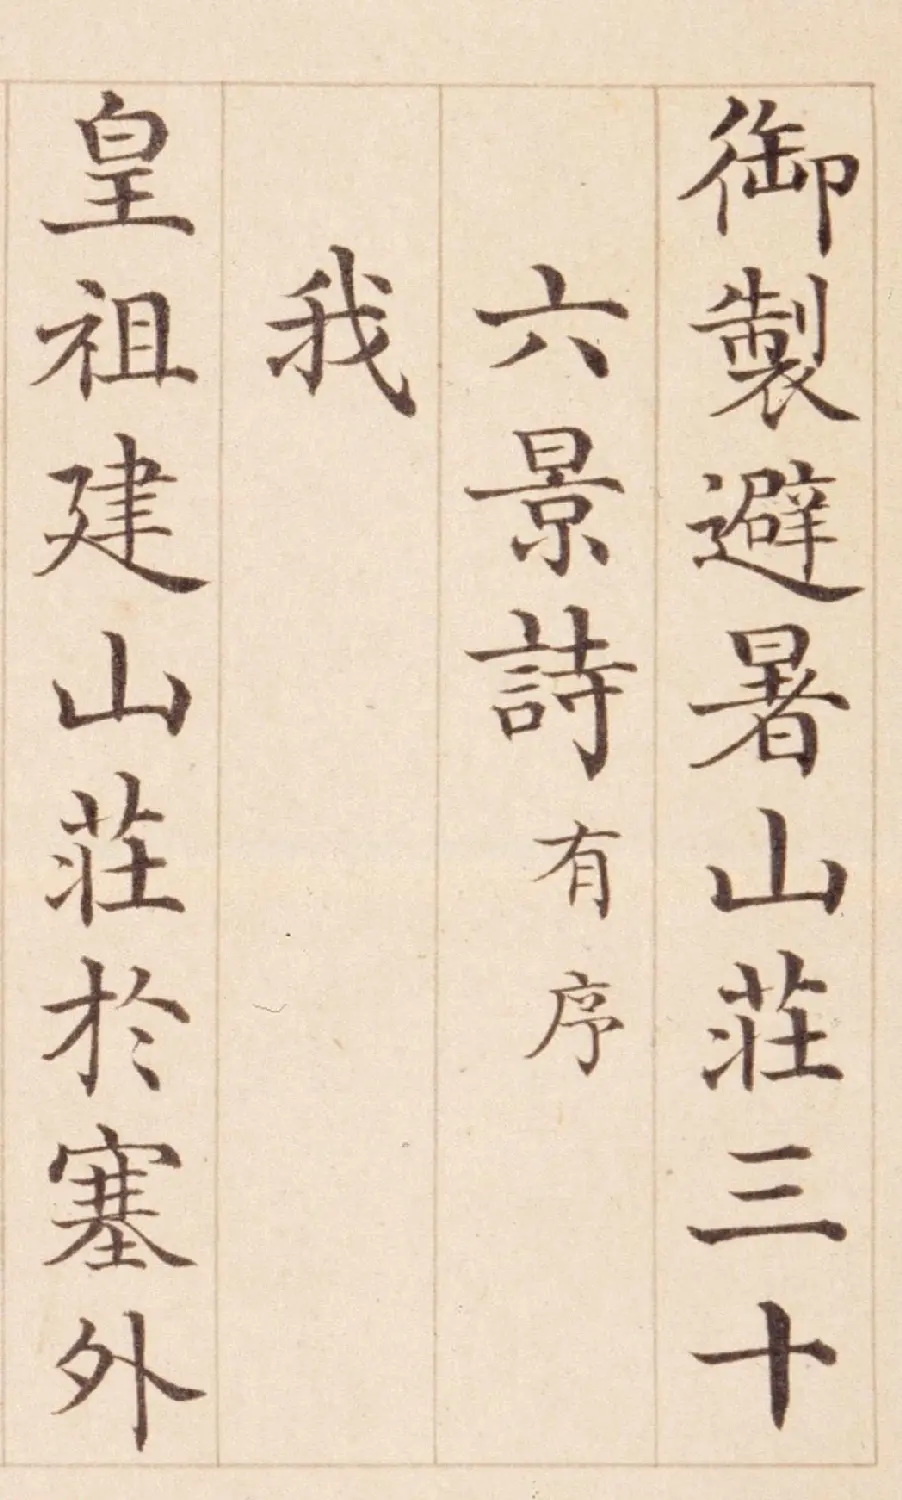 御製避暑山莊三十
六景詩有序
我
皇祖建山莊於塞外